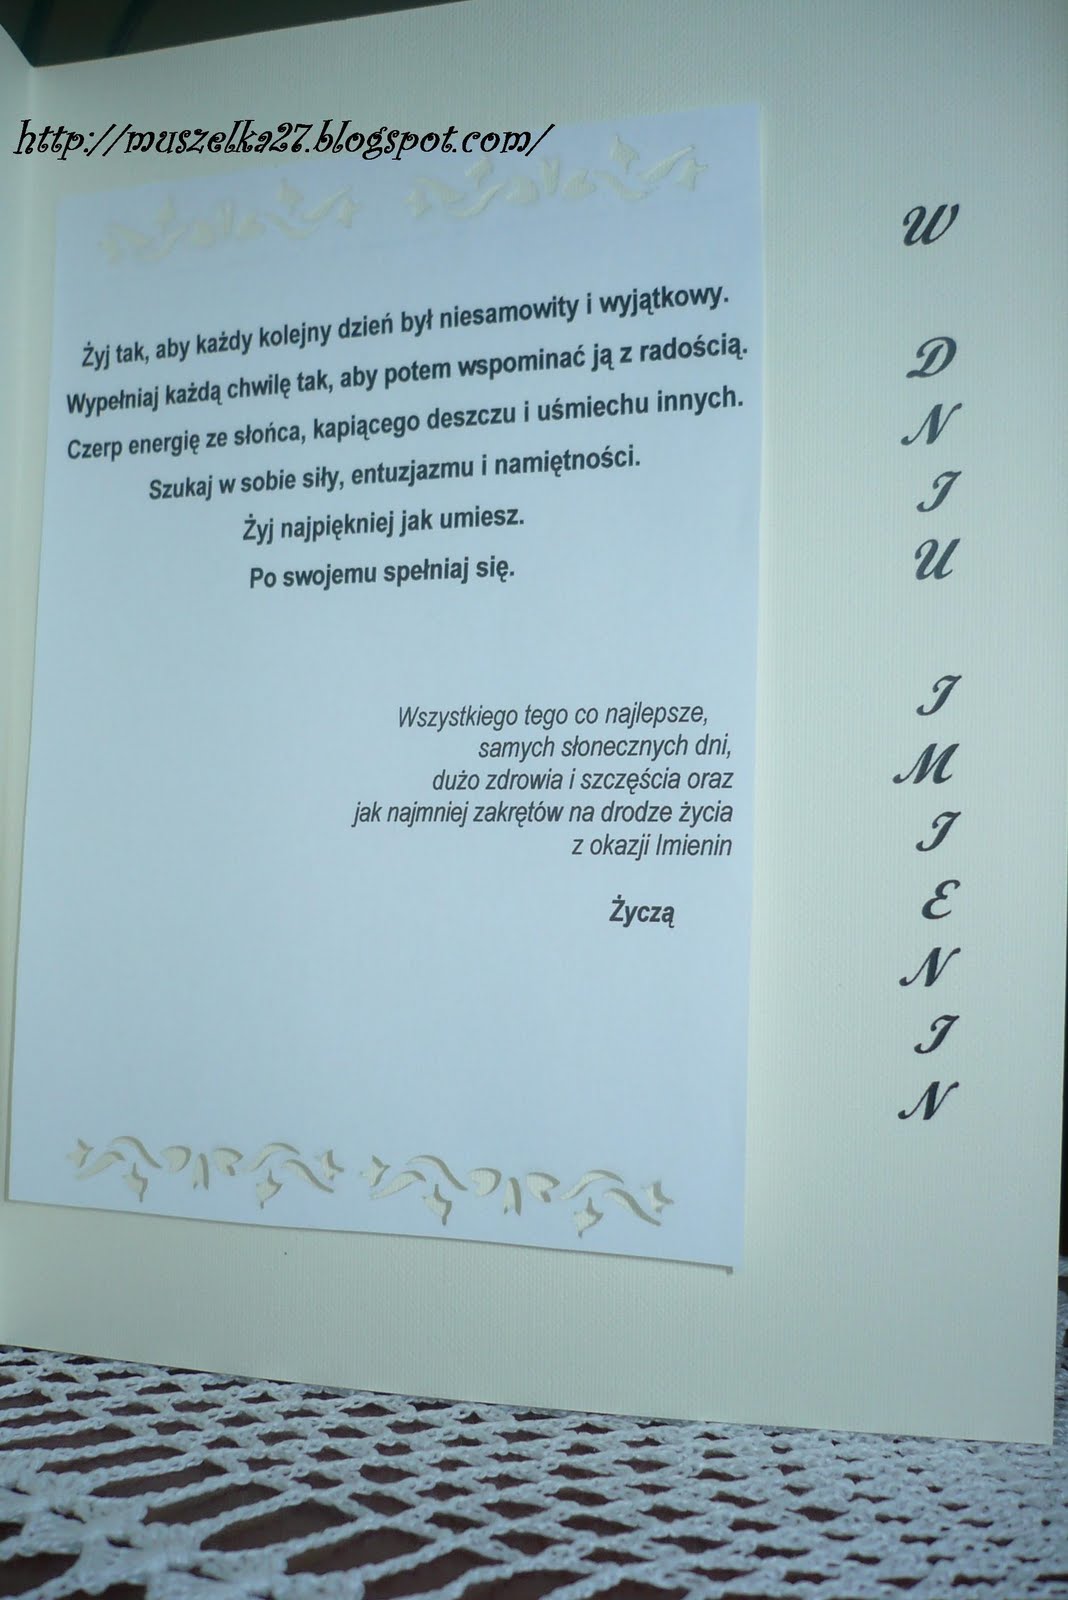 http://muszelka27.blogspot.com/
Żyj tak, aby każdy kolejny dzień był niesamowity i wyjątkowy.
Wypełniaj każdą chwilę tak, aby potem wspominać ją z radością.
Czerp energię ze słońca, kapiącego deszczu i uśmiechu innych.
Szukaj w sobie siły, entuzjazmu i namiętności.
Żyj najpiękniej jak umiesz.
Po swojemu spełniaj się.
Wszystkiego tego co najlepsze,
samych słonecznych dni,
dużo zdrowia i szczęścia oraz
jak najmniej zakrętów na drodze życia
z okazji Imienin
Życzą
W
D
N
I
U
I
M
I
E
N
I
N